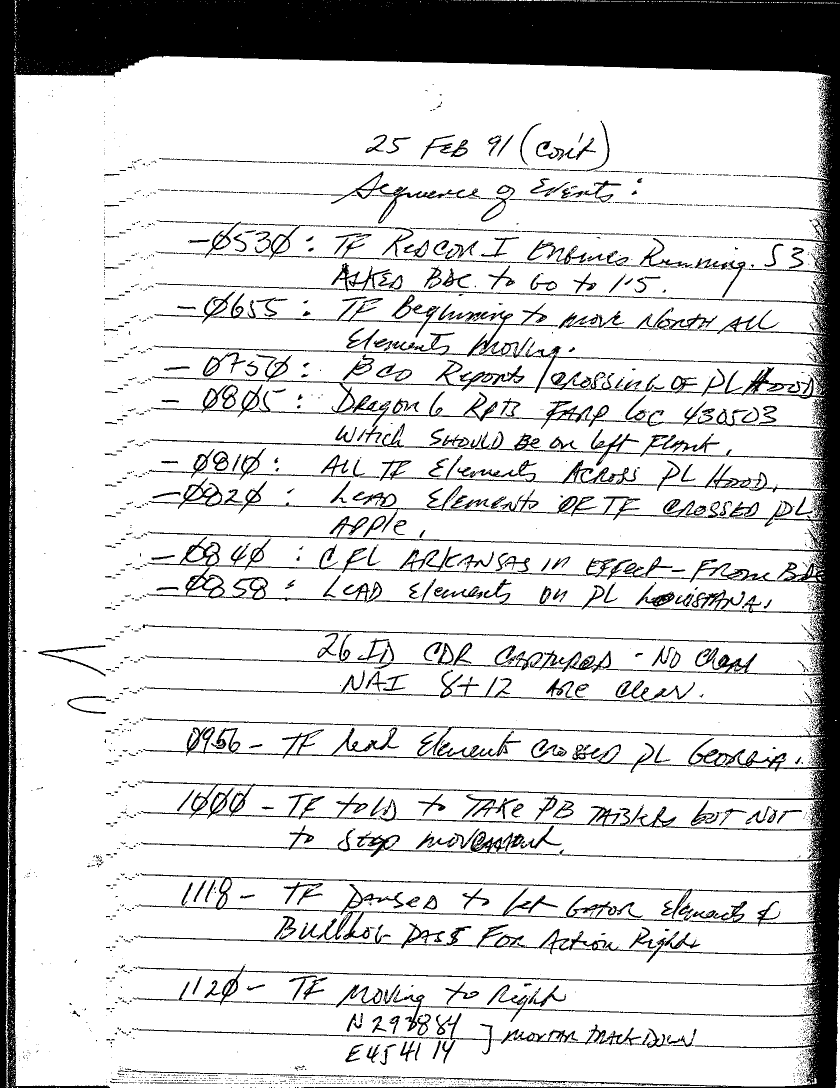 25 FEB 91 (Con't)
Sequence of Events:
-Ø53Ø: TF RedCON I Engines Running. S3
ASKED BDE. to Go to 1.5.
-Ø655: TF Beginning to move North All
Elements Moving.
- Ø75Ø: BCO Reports crossing OF PL Hood
- Ø8Ø5: Dragon 6 Rpts FARP loc 430503
Which SHOULD Be on left Flank.
- Ø81Ø: ALL TF Elements Across PL Hood.
-Ø82Ø: Lead Elements OF TF crossed PL
Apple.
-Ø84Ø: CFL ARKANSAS in effect - From Bde
-Ø858: Lead Elements on PL Louisiana.
26 ID CDR Captured - No Chem
NAI 8+12 Are Clear.
0956 - TF lead Elements Crossed PL Georgia.
1ØØØ - TF told to TAKE PB Tablets but NOT
to Stop movement.
1118 - TF Paused to let Gator Elements &
Bulldog Pass For Action Right
112Ø - TF Moving to Right
N 293884
E 454114 ] mortar track Down